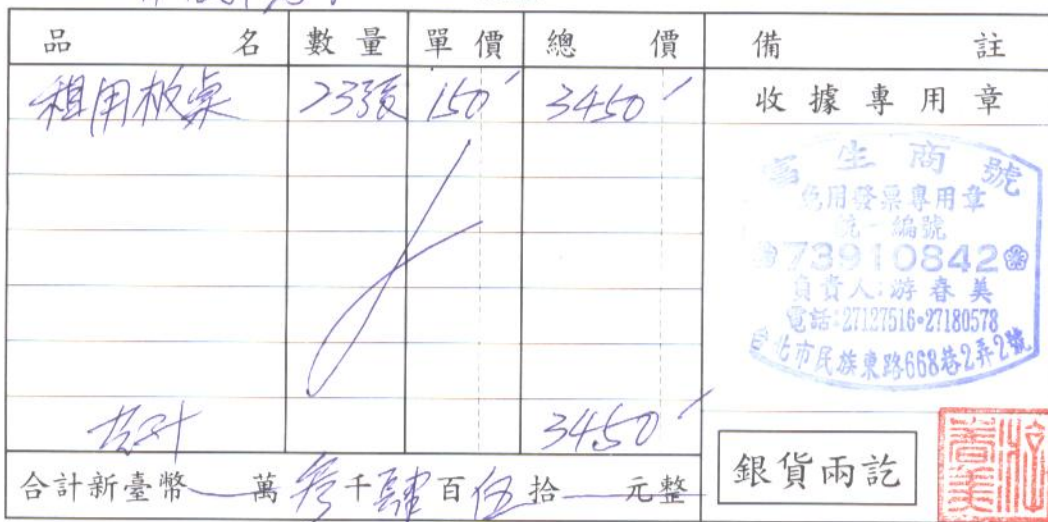 品名 數量 單價 總價 備註
租用板桌 23張 150 3450 收據專用章
富生商號
免用發票專用章
統一編號
73910842
負責人:游春美
電話:27127516•27180578
台北市民族東路668巷2弄2號
共計 3450
合計新臺幣 萬 參千肆百伍拾 元整
銀貨兩訖
游春美